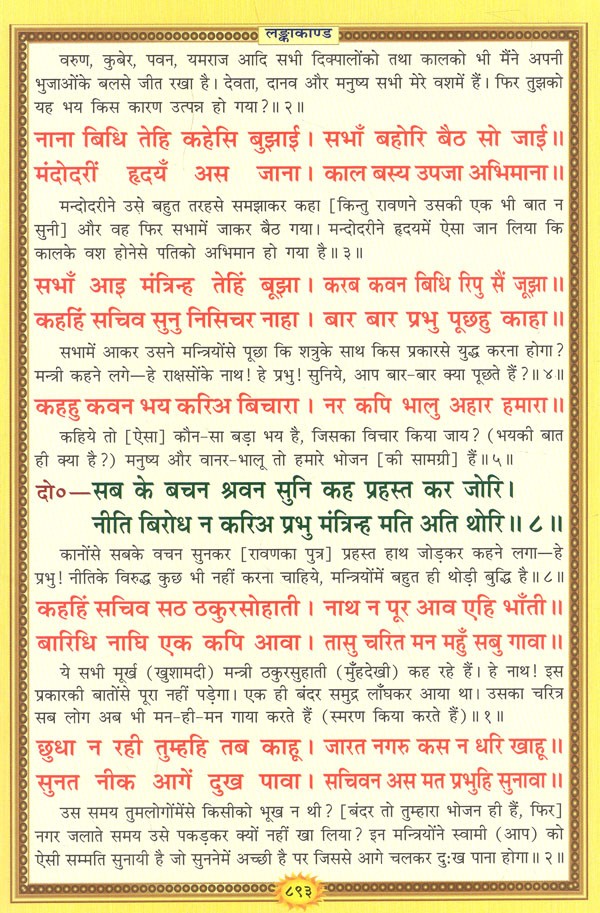 लङ्काकाण्ड
वरुण, कुबेर, पवन, यमराज आदि सभी दिक्पालोंको तथा कालको भी मैंने अपनी
भुजाओंके बलसे जीत रखा है। देवता, दानव और मनुष्य सभी मेरे वशमें हैं। फिर तुझको
यह भय किस कारण उत्पन्न हो गया?॥२॥
नाना बिधि तेहि कहेसि बुझाई। सभाँ बहोरि बैठ सो जाई॥
मंदोदरीं हृदयँ अस जाना। काल बस्य उपजा अभिमाना॥
मन्दोदरीने उसे बहुत तरहसे समझाकर कहा [किन्तु रावणने उसकी एक भी बात न
सुनी] और वह फिर सभामें जाकर बैठ गया। मन्दोदरीने हृदयमें ऐसा जान लिया कि
कालके वश होनेसे पतिको अभिमान हो गया है॥३॥
सभाँ आइ मंत्रिन्ह तेहिं बूझा। करब कवन बिधि रिपु सैं जूझा॥
कहहिं सचिव सुनु निसिचर नाहा। बार बार प्रभु पूछहु काहा॥
सभामें आकर उसने मन्त्रियोंसे पूछा कि शत्रुके साथ किस प्रकारसे युद्ध करना होगा?
मन्त्री कहने लगे—हे राक्षसोंके नाथ! हे प्रभु! सुनिये, आप बार-बार क्या पूछते हैं?॥४॥
कहहु कवन भय करिअ बिचारा। नर कपि भालु अहार हमारा॥
कहिये तो [ऐसा] कौन-सा बड़ा भय है, जिसका विचार किया जाय? (भयकी बात
ही क्या है?) मनुष्य और वानर-भालू तो हमारे भोजन [की सामग्री] हैं॥५॥
दो०—सब के बचन श्रवन सुनि कह प्रहस्त कर जोरि।
नीति बिरोध न करिअ प्रभु मंत्रिन्ह मति अति थोरि॥८॥
कानोंसे सबके वचन सुनकर [रावणका पुत्र] प्रहस्त हाथ जोड़कर कहने लगा—हे
प्रभु! नीतिके विरुद्ध कुछ भी नहीं करना चाहिये, मन्त्रियोंमें बहुत ही थोड़ी बुद्धि है॥८॥
कहहिं सचिव सठ ठकुरसोहाती। नाथ न पूर आव एहि भाँती॥
बारिधि नाघि एक कपि आवा। तासु चरित मन महुँ सबु गावा॥
ये सभी मूर्ख (खुशामदी) मन्त्री ठकुरसुहाती (मुँहदेखी) कह रहे हैं। हे नाथ! इस
प्रकारकी बातोंसे पूरा नहीं पड़ेगा। एक ही बंदर समुद्र लाँघकर आया था। उसका चरित्र
सब लोग अब भी मन-ही-मन गाया करते हैं (स्मरण किया करते हैं)॥१॥
छुधा न रही तुम्हहि तब काहू। जारत नगरु कस न धरि खाहू॥
सुनत नीक आगें दुख पावा। सचिवन अस मत प्रभुहि सुनावा॥
उस समय तुमलोगोंमेंसे किसीको भूख न थी? [बंदर तो तुम्हारा भोजन ही हैं, फिर]
नगर जलाते समय उसे पकड़कर क्यों नहीं खा लिया? इन मन्त्रियोंने स्वामी (आप) को
ऐसी सम्मति सुनायी है जो सुननेमें अच्छी है पर जिससे आगे चलकर दु:ख पाना होगा॥२॥
८९३